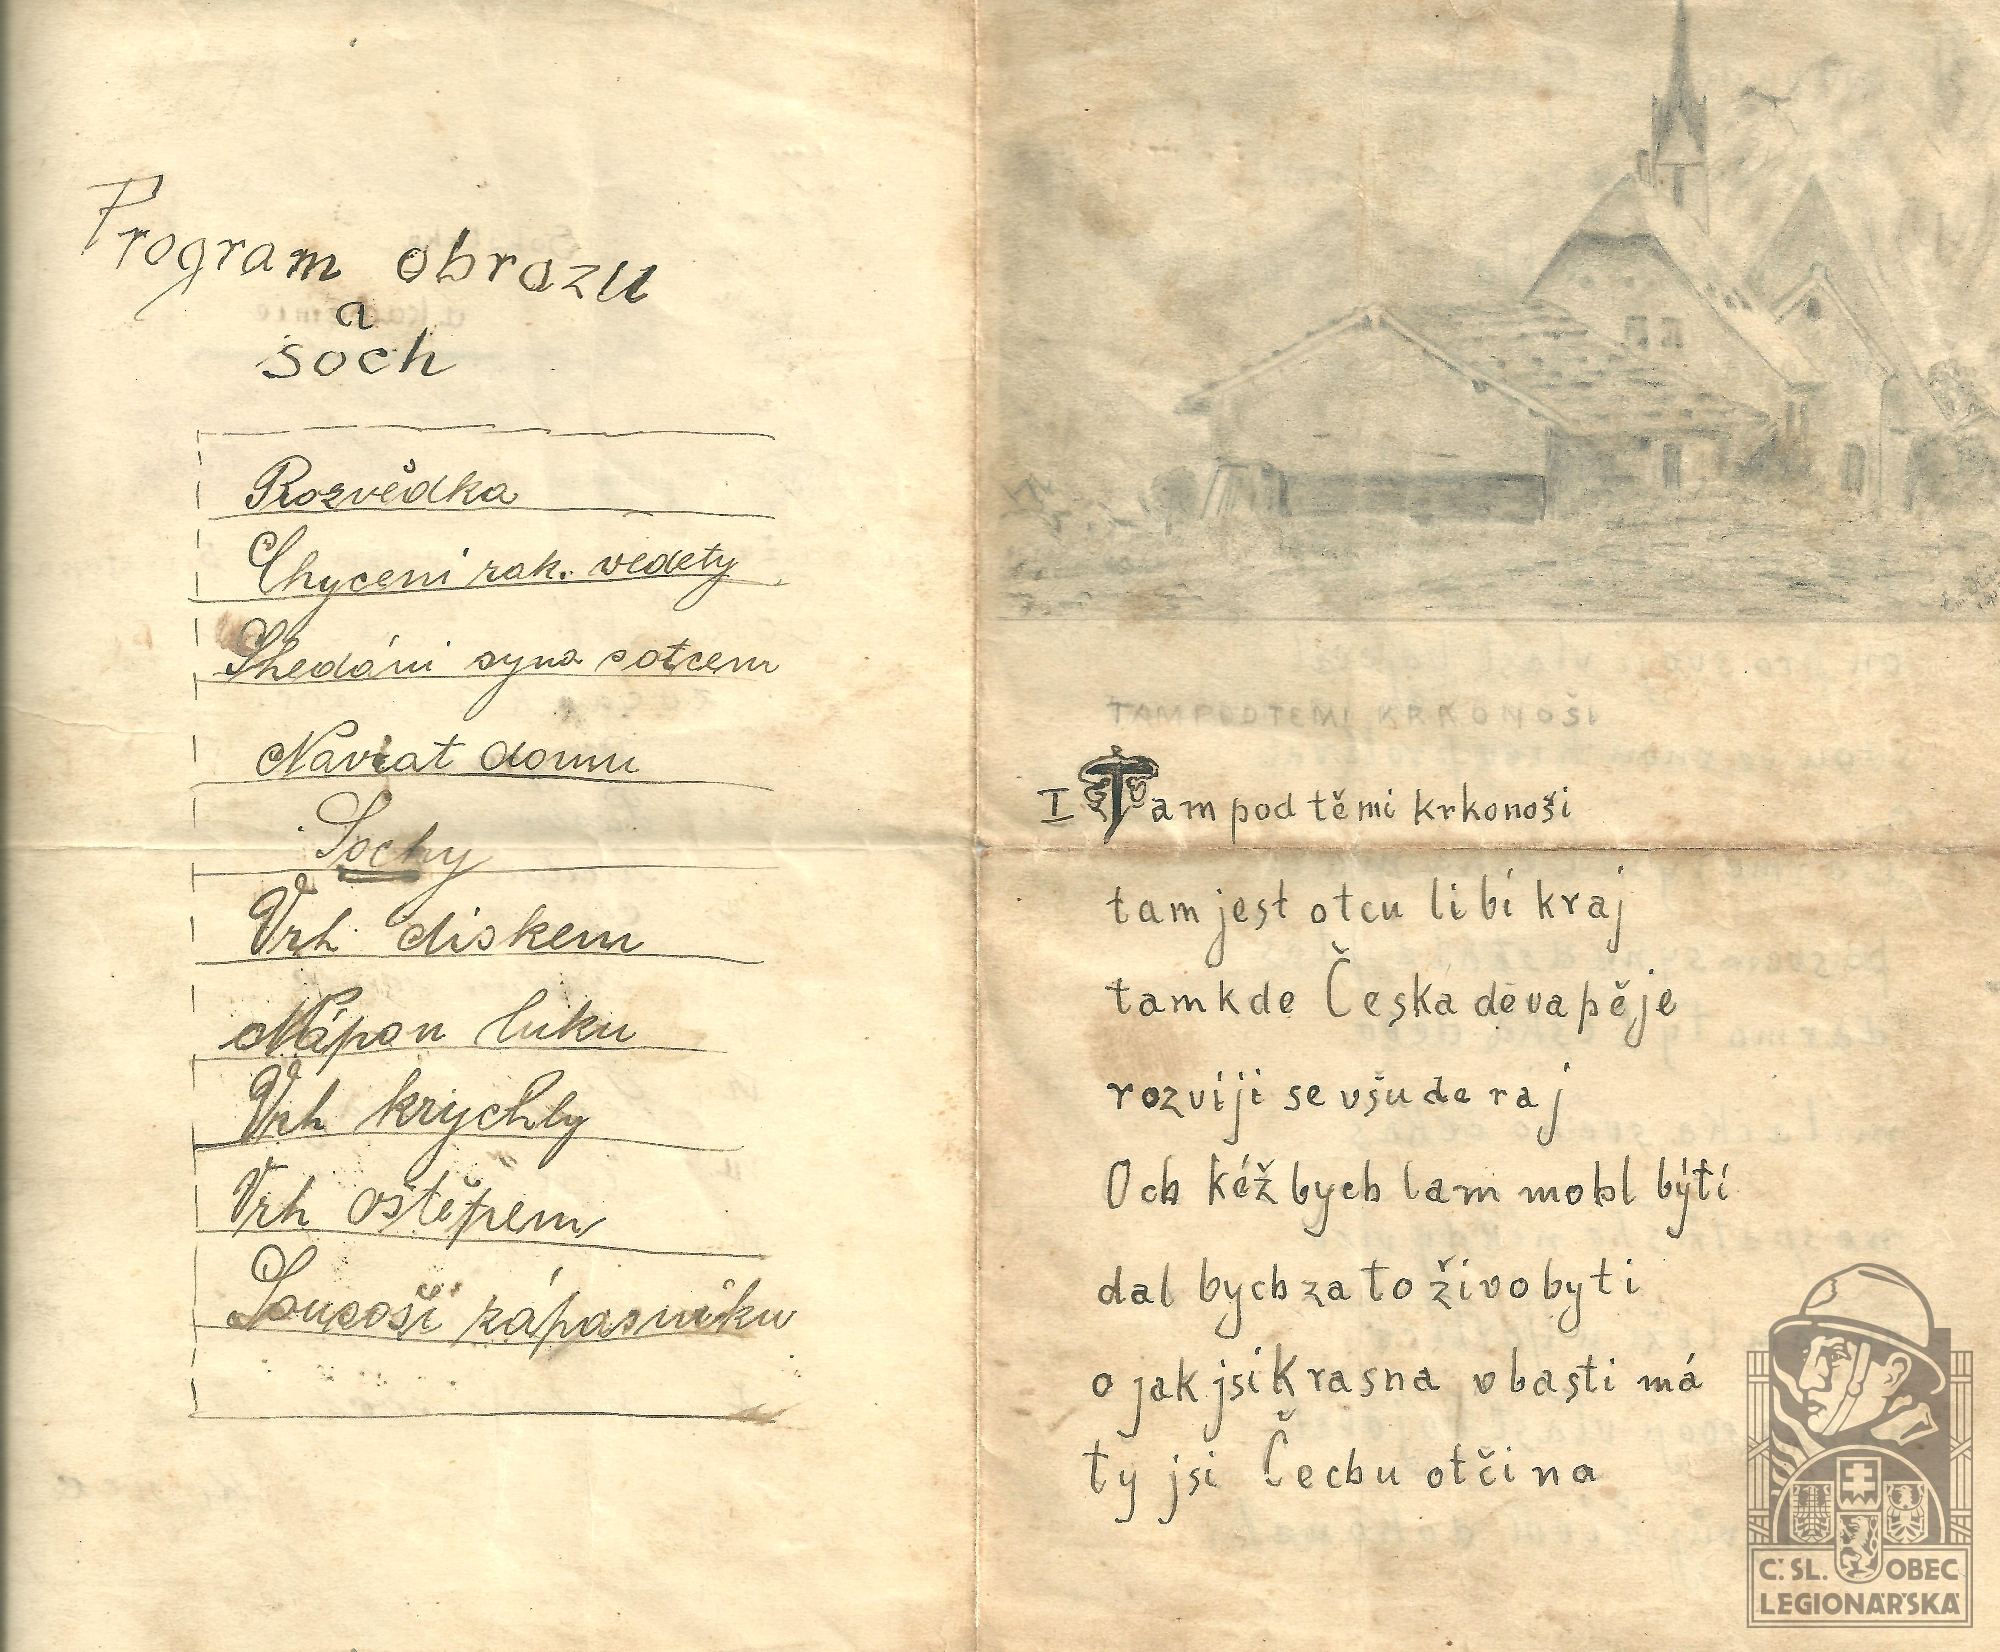 Program obrazu
a
soch
Rozvědka
Chyceni rak. vedety
Shledáni syna s otcem
Navrat domu
Sochy
Vrh diskem
Nápon luku
Vrh krychly
Vrh oštěpem
Sousoší zápasniku
TAM POD TEMI KRKONOŠI
I Tam pod těmi krkonoši
tam jest otcu libí kraj
tam kde Česka děva pěje
rozviji se všude raj
Och kéž bych tam mohl býti
dal bych za to živobyti
o jak jsi Krasna vlasti má
ty jsi Čechu otčina
Č. SL. OBEC
LEGIONÁŘSKÁ